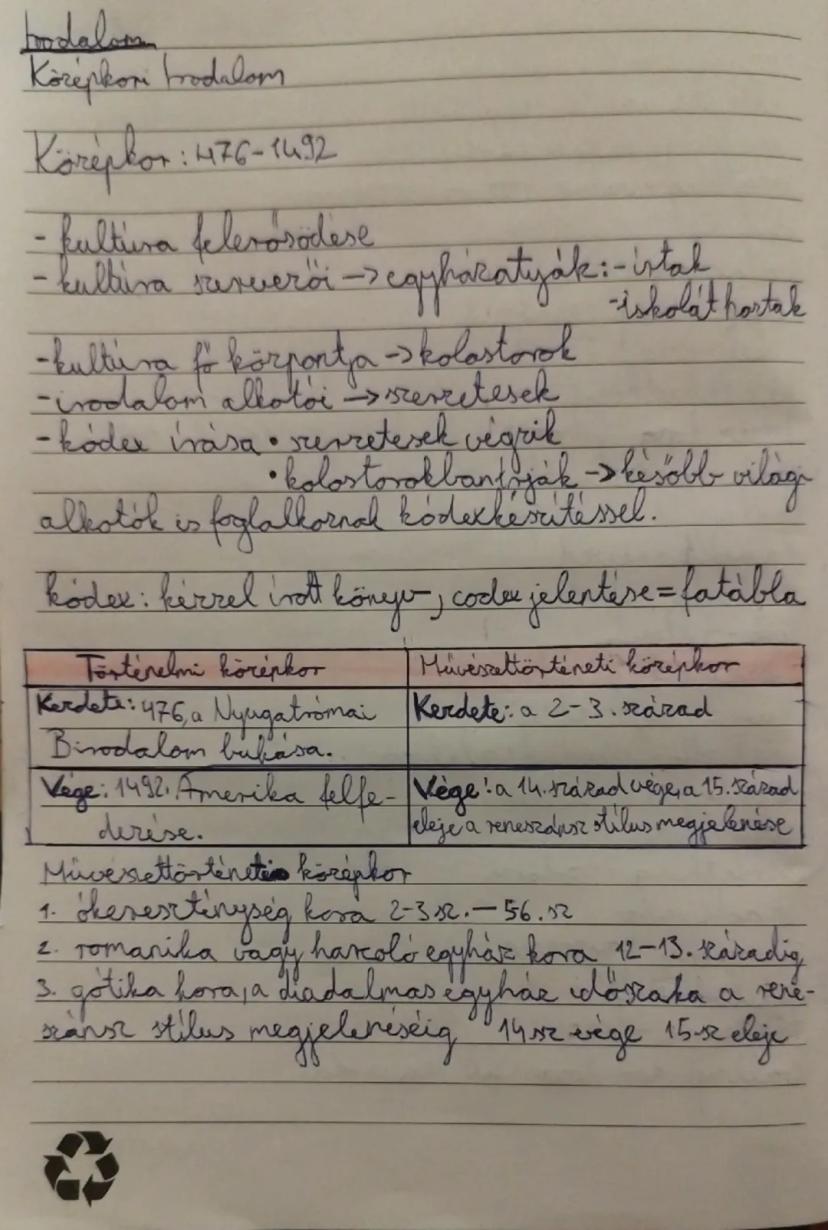 Irodalom
Középkori Irodalom
Középkor: 476-1492
- kultúra felerősödése
- kultúra szervezői -> egyházatyák: - írtak
- iskolát hoztak
- kultúra fő központja -> kolostorok
- irodalom alkotói -> szerzetesek
- kódex írása • szerzetesek végzik
• kolostorokban írják -> később világi
alkotók is foglalkoznak kódexkészítéssel.
kódex: kézzel írott könyv, codex jelentése = fatábla
Történelmi középkor | Művészettörténeti középkor
Kezdete: 476, a Nyugatrómai | Kezdete: a 2-3. század
Birodalom bukása.
Vége: 1492. Amerika felfe- | Vége: a 14. század vége, a 15. század
dezése. | eleje a reneszánsz stílus megjelenése
Művészettörténeti középkor
1. ókereszténység kora 2-3 sz. - 56. sz
2. romanika vagy harcoló egyház kora 12-13. századig
3. gótika kora, a diadalmas egyház időszaka a rene-
szánsz stílus megjelenéséig 14 sz vége 15-sz eleje